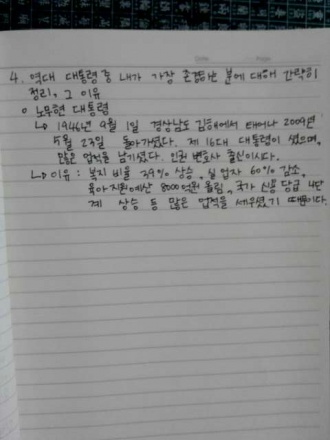 4. 역대 대통령 중 내가 가장 존경하는 분에 대해 간략히
정리, 그 이유
○ 노무현 대통령
↳ 1946년 9월 1일 경상남도 김해에서 태어나 2009년
5월 23일 돌아가셨다. 제 16대 대통령이 셨으며,
많은 업적을 남기셨다. 인권 변호사 출신이시다.
↳ 이유 : 복지 비율 39% 상승, 실업자 60% 감소,
육아지원예산 8000억원 올림, 국가 신용 등급 4단
계 상승 등 많은 업적을 세우셨기 때문이다.